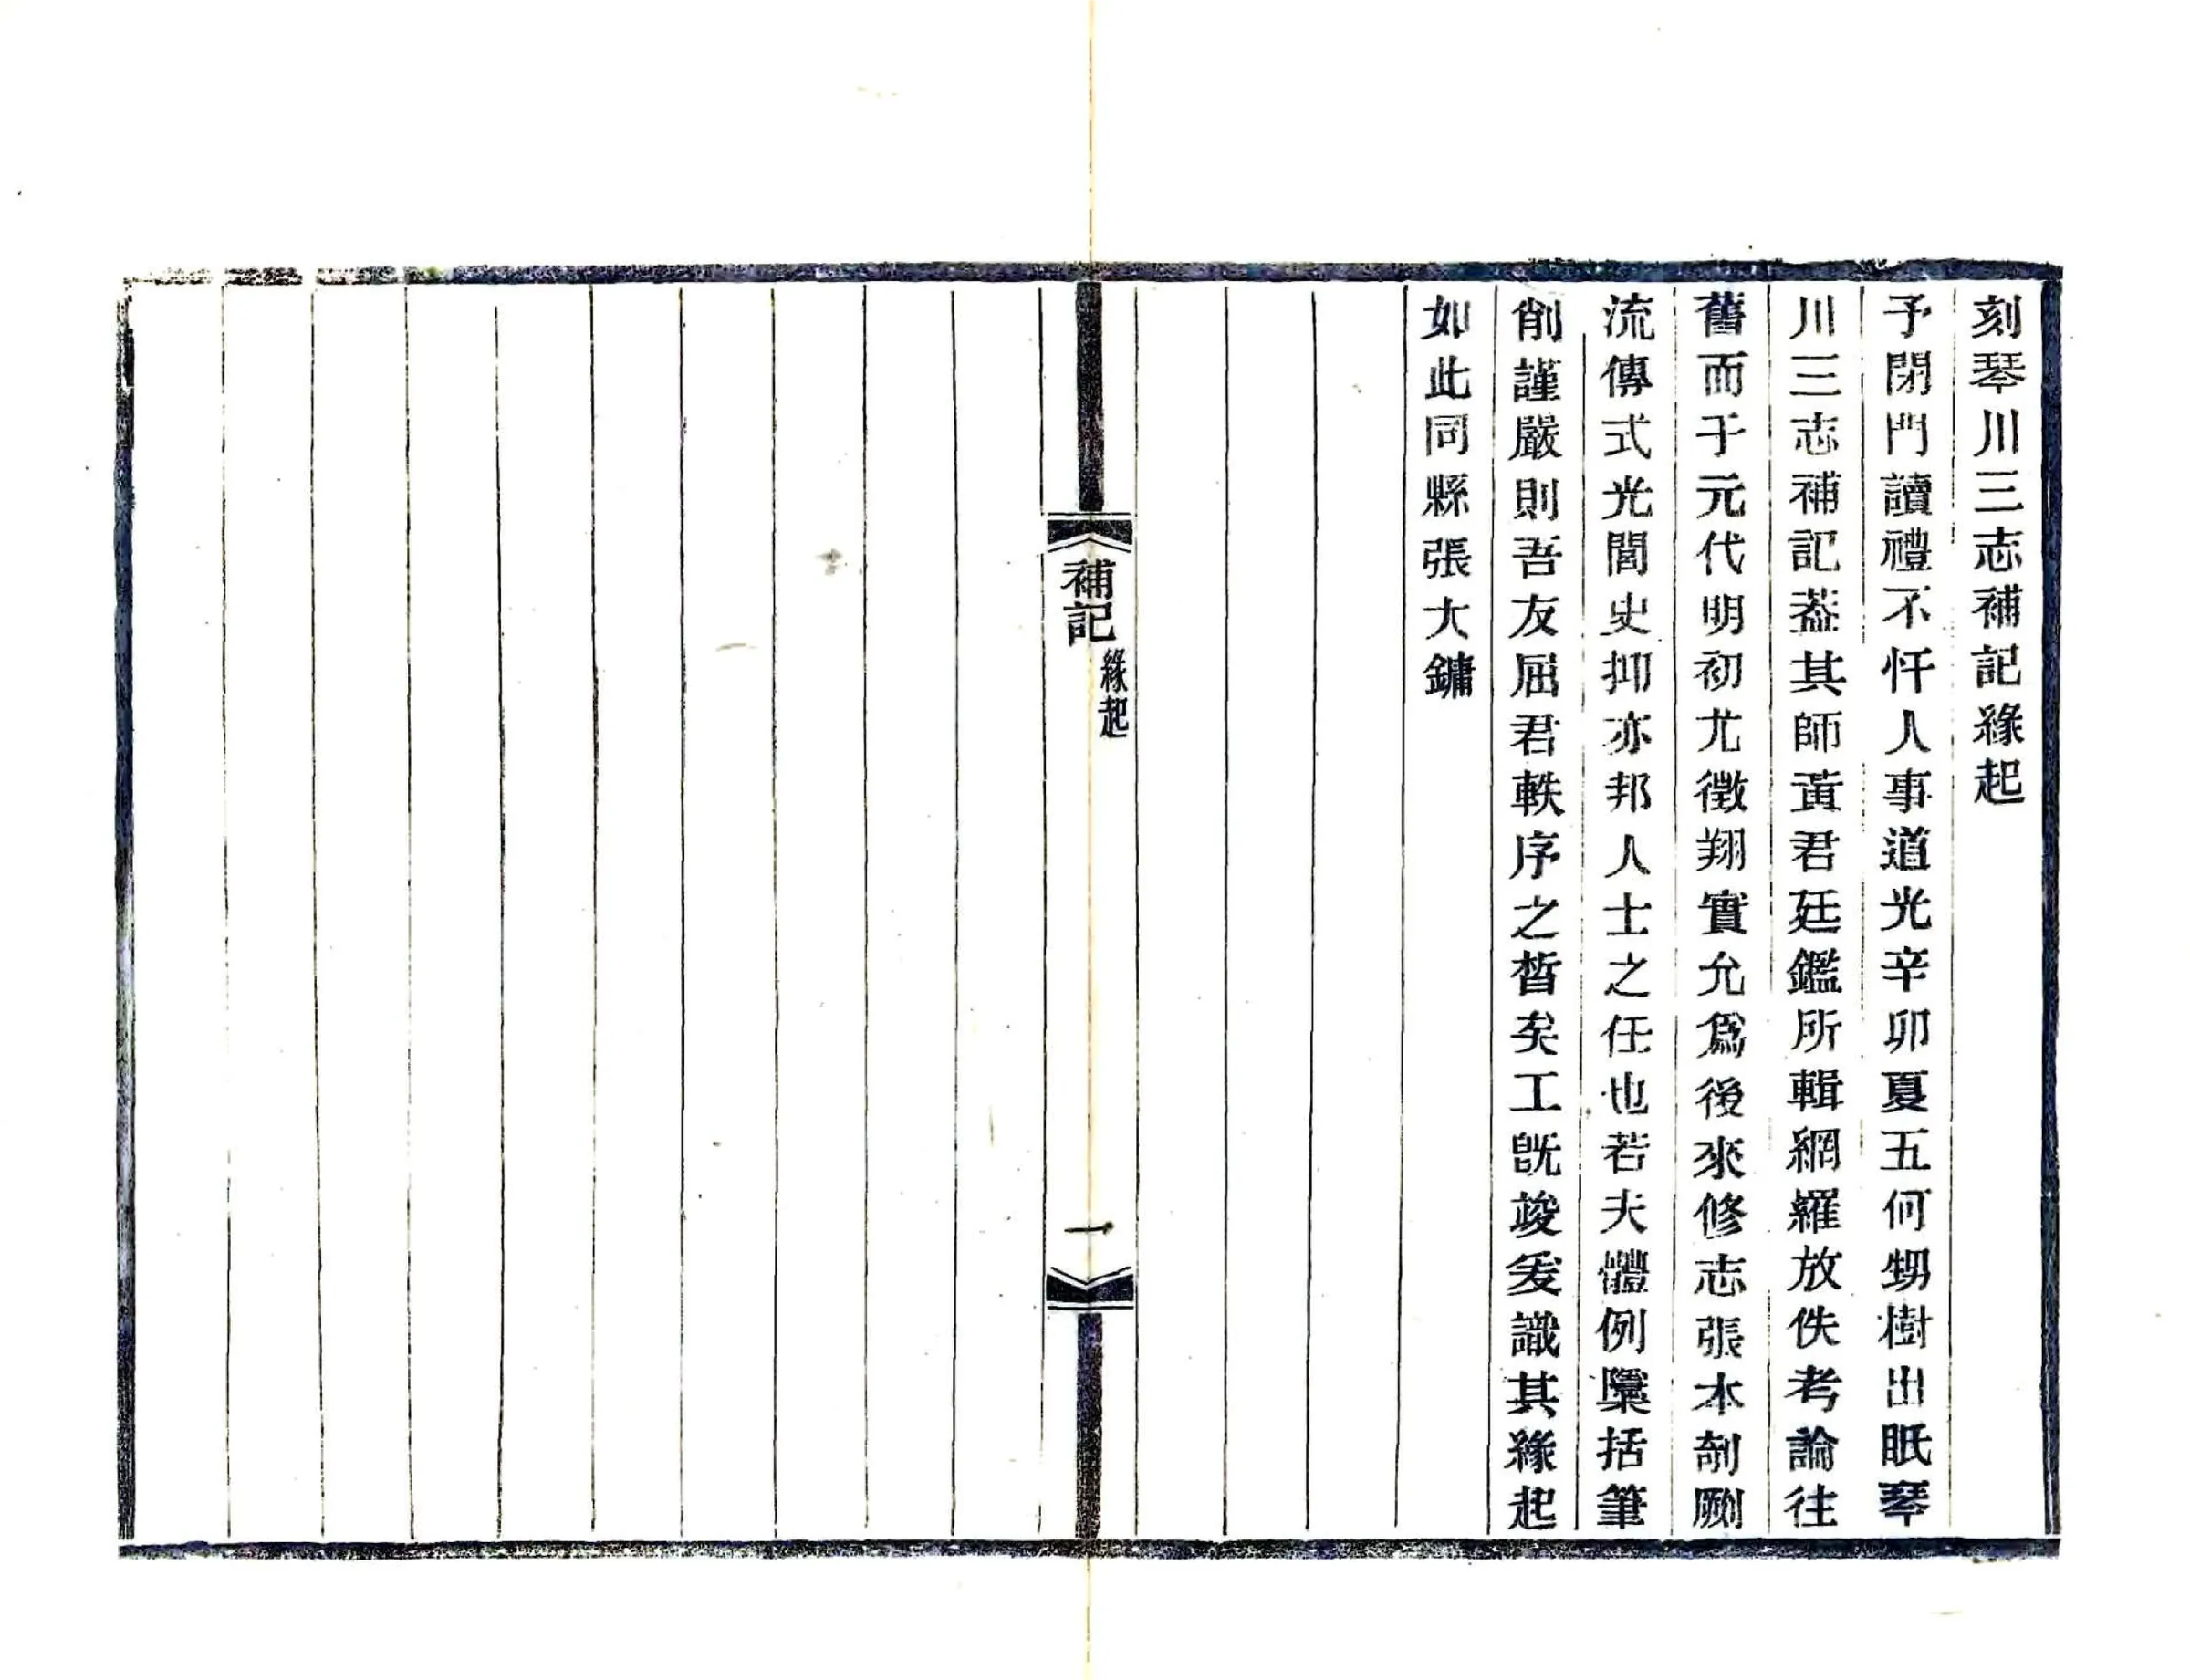 刻琴川三志補記緣起
予閉門讀禮不忏人事道光辛卯夏五何甥樹出眂琴
川三志補記葢其師黃君廷鑑所輯網羅放佚考論往
舊而于元代明初尤徵翔實允爲後來修志張本剞劂
流傳式光閭史抑亦邦人士之任也若夫體例檃括筆
削謹嚴則吾友屈君軼序之晳矣工旣竣爰識其緣起
如此同縣張大鏞
補記
緣起
一